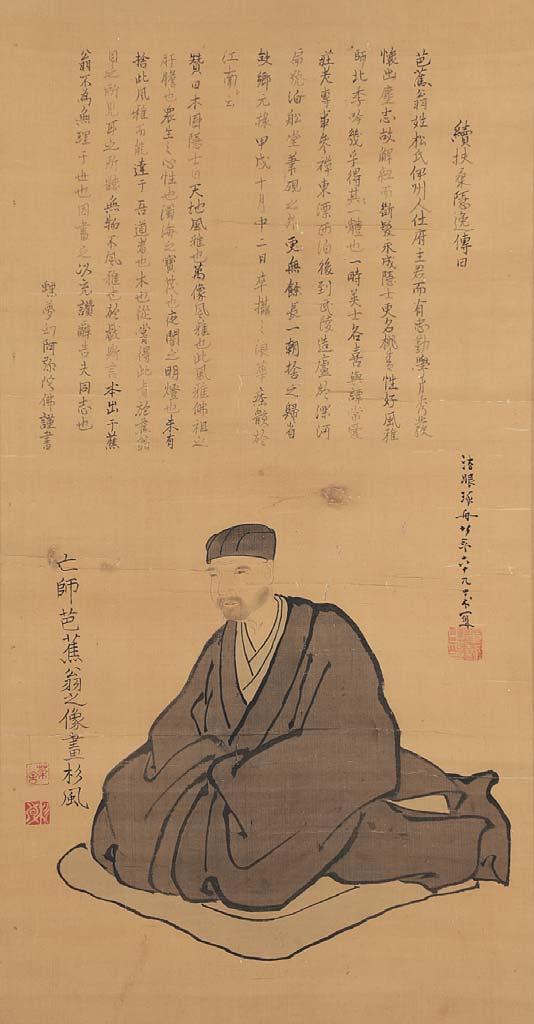 續扶桑隱逸傳曰
芭蕉翁姓松氏伊州人仕府主君而有志勤學
懷出塵志故解紐而斷髮永成隱士更名桃青性好風雅
師北季吟幾乎得其一體也一時英士各喜與譚常愛
莊老專車參禪東漂西泊後到武陵造廬於深河
扁號泊船堂兼硯之外更無餘長一朝捨之歸省
故鄉元祿甲戌十月中二日卒攝之浪華瘞骸於
江南云
贊曰本國隱士曰天地風雅也萬像風雅也此風雅佛祖之
肝膽也衆生之心性也濁海之寶筏也夜闇之明燈也未有
捨此風雅而能達于吾道者也
目之所見耳之所聽無物不風雅也於戲斯言本出于蕉
翁不為無理于世也因畫之以充讚辭告夫同志也
蝶夢幻阿弥陀佛謹書
六十九
亡師芭蕉翁之像畫杉風